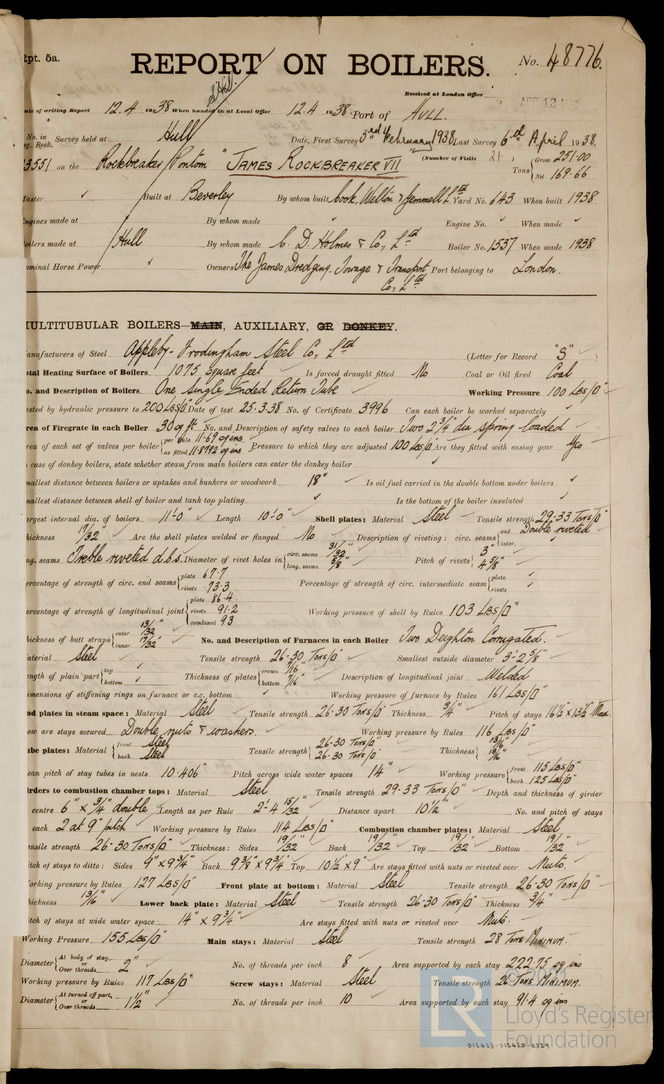 Rpt. 5a.
REPORT ON BOILERS.
No. 48776.
Received at London Office
Date of writing Report 12.4 1938 When handed in at Local Office 12.4 1938 Port of HULL.
No. in Survey held at Hull Date, First Survey 3rd February 1938 Last Survey 6th April 1938.
Reg. Book.
(Number of Visits 21)
3551 on the Rockbreaker/Pontom "JAMES ROCKBREAKER VII Tons { Gross 251.00
Net 169.66
Master ✓ Built at Beverley By whom built Cook, Welton & Gemmell Ltd Yard No. 643 When built 1938
Engines made at By whom made Engine No. When made
Boilers made at Hull By whom made C. D. Holmes & Co, Ltd Boiler No. 1537 When made 1938
Nominal Horse Power Owners The James Dredging, Towage & Transport Co, Ltd Port belonging to London.
MULTITUBULAR BOILERS—MAIN, AUXILIARY, OR DONKEY.
Manufacturers of Steel Appleby-Frodingham Steel Co, Ltd (Letter for Record "S")
Total Heating Surface of Boilers 1075 Square feet Is forced draught fitted No Coal or Oil fired Coal
No. and Description of Boilers One Single Ended Return Tube Working Pressure 100 Lbs/□"
Tested by hydraulic pressure to 200 Lbs/□" Date of test 25.3.38 No. of Certificate 3996 Can each boiler be worked separately
Area of Firegrate in each Boiler 30 sq ft No. and Description of safety valves to each boiler Two 2 3/4" dia spring loaded
Area of each set of valves per boiler { per Rule 11.69 sq ins
as fitted 11.8792 sq ins Pressure to which they are adjusted 100 Lbs/□" Are they fitted with easing gear Yes
In case of donkey boilers, state whether steam from main boilers can enter the donkey boiler
Smallest distance between boilers or uptakes and bunkers or woodwork 18" Is oil fuel carried in the double bottom under boilers
Smallest distance between shell of boiler and tank top plating Is the bottom of the boiler insulated
Largest internal dia. of boilers 11'-0" Length 10'-0" Shell plates: Material Steel Tensile strength 29-33 Tons/□"
Thickness 19/32" Are the shell plates welded or flanged No Description of riveting: circ. seams { end Double riveted
inter.
long. seams Treble riveted d.b.s. Diameter of rivet holes in { circ. seams 31/32"
long. seams 7/8" Pitch of rivets { 3"
4 5/8"
Percentage of strength of circ. end seams { plate 67.7
rivets 73.3 Percentage of strength of circumferential intermediate seam { plate
rivets
Percentage of strength of longitudinal joint { plate 86.4
rivets 91.2
combined 93 Working pressure of shell by Rules 103 Lbs/□"
Thickness of butt straps { outer 13/32"
inner 17/32" No. and Description of Furnaces in each Boiler Two Deighton Corrugated.
Material Steel Tensile strength 26-30 Tons/□" Smallest outside diameter 3'-2 5/8"
Length of plain part { top
bottom Thickness of plates { crown 7/16"
bottom 7/16" Description of longitudinal joint Welded
Dimensions of stiffening rings on furnace or c.c. bottom Working pressure of furnace by Rules 161 Lbs/□"
End plates in steam space: Material Steel Tensile strength 26-30 Tons/□" Thickness 3/4" Pitch of stays 16 1/2" x 13 1/2" Max.
How are stays secured Double nuts & washers. Working pressure by Rules 116 Lbs/□"
Tube plates: Material { front Steel
back Steel Tensile strength { 26-30 Tons/□"
26-30 Tons/□" Thickness { 13/16"
Mean pitch of stay tubes in nests 10.406" Pitch across wide water spaces 14" Working pressure { front 115 Lbs/□"
back 125 Lbs/□"
Girders to combustion chamber tops: Material Steel Tensile strength 29-33 Tons/□" Depth and thickness of girder
at centre 6" x 3/4" double Length as per Rule 2'-4 15/32" Distance apart 10 1/2" No. and pitch of stays
in each 2 at 9" pitch Working pressure by Rules 114 Lbs/□" Combustion chamber plates: Material Steel
Tensile strength 26-30 Tons/□" Thickness: Sides 19/32" Back 19/32" Top 19/32" Bottom 19/32"
Pitch of stays to ditto: Sides 9" x 9 3/4" Back 9 3/8" x 9 3/4" Top 10 1/2" x 9" Are stays fitted with nuts or riveted over Nuts.
Working pressure by Rules 127 Lbs/□" Front plate at bottom: Material Steel Tensile strength 26-30 Tons/□"
Thickness 13/16" Lower back plate: Material Steel Tensile strength 26-30 Tons/□" Thickness 3/4"
Pitch of stays at wide water space 14" x 9 3/4" Are stays fitted with nuts or riveted over Nuts.
Working Pressure 155 Lbs/□" Main stays: Material Steel Tensile strength 28 Tons Minimum.
Diameter { At body of stay, or Over threads 2" No. of threads per inch 8 Area supported by each stay 222.75 sq ins
Working pressure by Rules 117 Lbs/□" Screw stays: Material Steel Tensile strength 26 Tons Minimum.
Diameter { At turned off part, or Over threads 1 1/2" No. of threads per inch 10 Area supported by each stay 91.4 sq ins
LR
© 2021
Lloyd's Register
Foundation